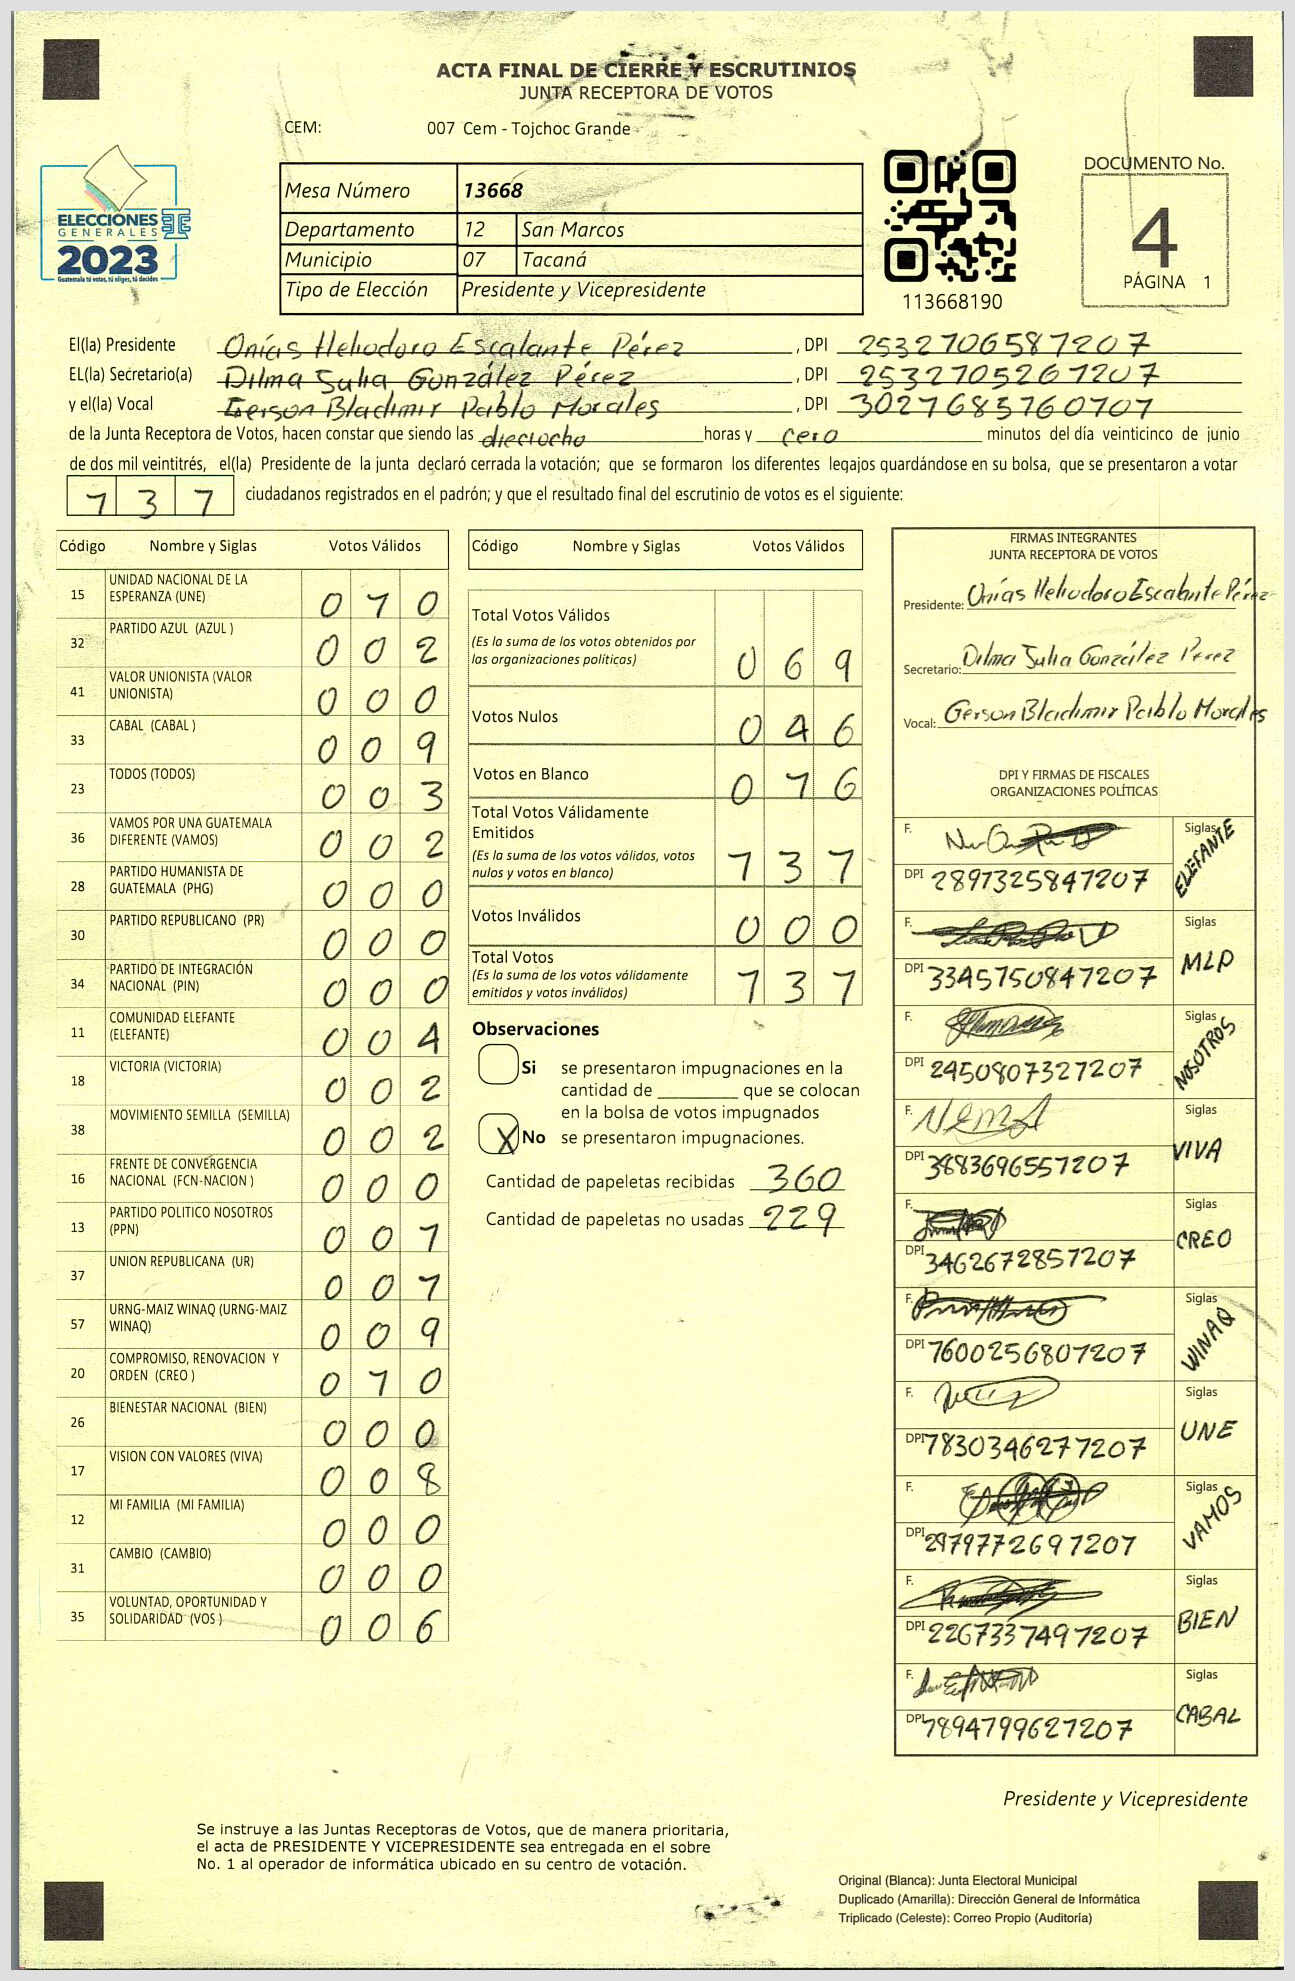 ACTA FINAL DE CIERRE Y ESCRUTINIOS
JUNTA RECEPTORA DE VOTOS
CEM: 007 Cem - Tojchoc Grande
ELECCIONES
GENERALES
2023
Guatemala tú votas, tú eliges, tú decides
Mesa Número 13668
Departamento 12 San Marcos
Municipio 07 Tacaná
Tipo de Elección Presidente y Vicepresidente
113668190
DOCUMENTO No.
4
PÁGINA 1
El(la) Presidente Onías Heliodoro Escalante Pérez , DPI 2532706581207
EL(la) Secretario(a) Dilma Julia González Pérez , DPI 2532705261207
y el(la) Vocal Gerson Bladimir Pablo Morales , DPI
de la Junta Receptora de Votos, hacen constar que siendo las dieciocho horas y cero minutos del día veinticinco de junio
de dos mil veintitrés, el(la) Presidente de la junta declaró cerrada la votación; que se formaron los diferentes legajos guardándose en su bolsa, que se presentaron a votar
1 3 1 ciudadanos registrados en el padrón; y que el resultado final del escrutinio de votos es el siguiente:
Código Nombre y Siglas Votos Válidos
15 UNIDAD NACIONAL DE LA ESPERANZA (UNE) 0 1 0
32 PARTIDO AZUL (AZUL ) 0 0 2
41 VALOR UNIONISTA (VALOR UNIONISTA) 0 0 0
33 CABAL (CABAL ) 0 0 9
23 TODOS (TODOS) 0 0 3
36 VAMOS POR UNA GUATEMALA DIFERENTE (VAMOS) 0 0 2
28 PARTIDO HUMANISTA DE GUATEMALA (PHG) 0 0 0
30 PARTIDO REPUBLICANO (PR) 0 0 0
34 PARTIDO DE INTEGRACIÓN NACIONAL (PIN) 0 0 0
11 COMUNIDAD ELEFANTE (ELEFANTE) 0 0 4
18 VICTORIA (VICTORIA) 0 0 2
38 MOVIMIENTO SEMILLA (SEMILLA) 0 0 2
16 FRENTE DE CONVERGENCIA NACIONAL (FCN-NACION ) 0 0 0
13 PARTIDO POLITICO NOSOTROS (PPN) 0 0 1
37 UNION REPUBLICANA (UR) 0 0 1
57 URNG-MAIZ WINAQ (URNG-MAIZ WINAQ) 0 0 9
20 COMPROMISO, RENOVACION Y ORDEN (CREO ) 0 1 0
26 BIENESTAR NACIONAL (BIEN) 0 0 0
17 VISION CON VALORES (VIVA) 0 0 8
12 MI FAMILIA (MI FAMILIA) 0 0 0
31 CAMBIO (CAMBIO) 0 0 0
35 VOLUNTAD, OPORTUNIDAD Y SOLIDARIDAD (VOS ) 0 0 6
Código Nombre y Siglas Votos Válidos
Total Votos Válidos
(Es la suma de los votos obtenidos por
las organizaciones políticas) 0 6 9
Votos Nulos 0 4 6
Votos en Blanco 0 1 6
Total Votos Válidamente
Emitidos
(Es la suma de los votos válidos, votos
nulos y votos en blanco) 1 3 1
Votos Inválidos 0 0 0
Total Votos
(Es la suma de los votos válidamente
emitidos y votos inválidos) 1 3 1
Observaciones
Si se presentaron impugnaciones en la
cantidad de ________ que se colocan
en la bolsa de votos impugnados
X No se presentaron impugnaciones.
Cantidad de papeletas recibidas 360
Cantidad de papeletas no usadas 229
FIRMAS INTEGRANTES
JUNTA RECEPTORA DE VOTOS
Presidente: Onías Heliodoro Escalante Pérez
Secretario: Dilma Julia González Pérez
Vocal: Gerson Bladimir Pablo Morales
DPI Y FIRMAS DE FISCALES
ORGANIZACIONES POLÍTICAS
F. Siglas ELEFANTE
DPI 2891325841207
F. Siglas MLP
DPI 3345150841207
F. Siglas NOSOTROS
DPI 2450807321207
F. Siglas VIVA
DPI 3883696551207
F. Siglas CREO
DPI 3462672851207
F. Siglas WINAQ
DPI 1600256801207
F. Siglas UNE
DPI 1830346271207
F. Siglas VAMOS
DPI 2979772691207
F. Siglas BIEN
DPI 2267337491207
F. Siglas CABAL
DPI 1894799621207
Presidente y Vicepresidente
Se instruye a las Juntas Receptoras de Votos, que de manera prioritaria,
el acta de PRESIDENTE Y VICEPRESIDENTE sea entregada en el sobre
No. 1 al operador de informática ubicado en su centro de votación.
Original (Blanca): Junta Electoral Municipal
Duplicado (Amarilla): Dirección General de Informática
Triplicado (Celeste): Correo Propio (Auditoría)